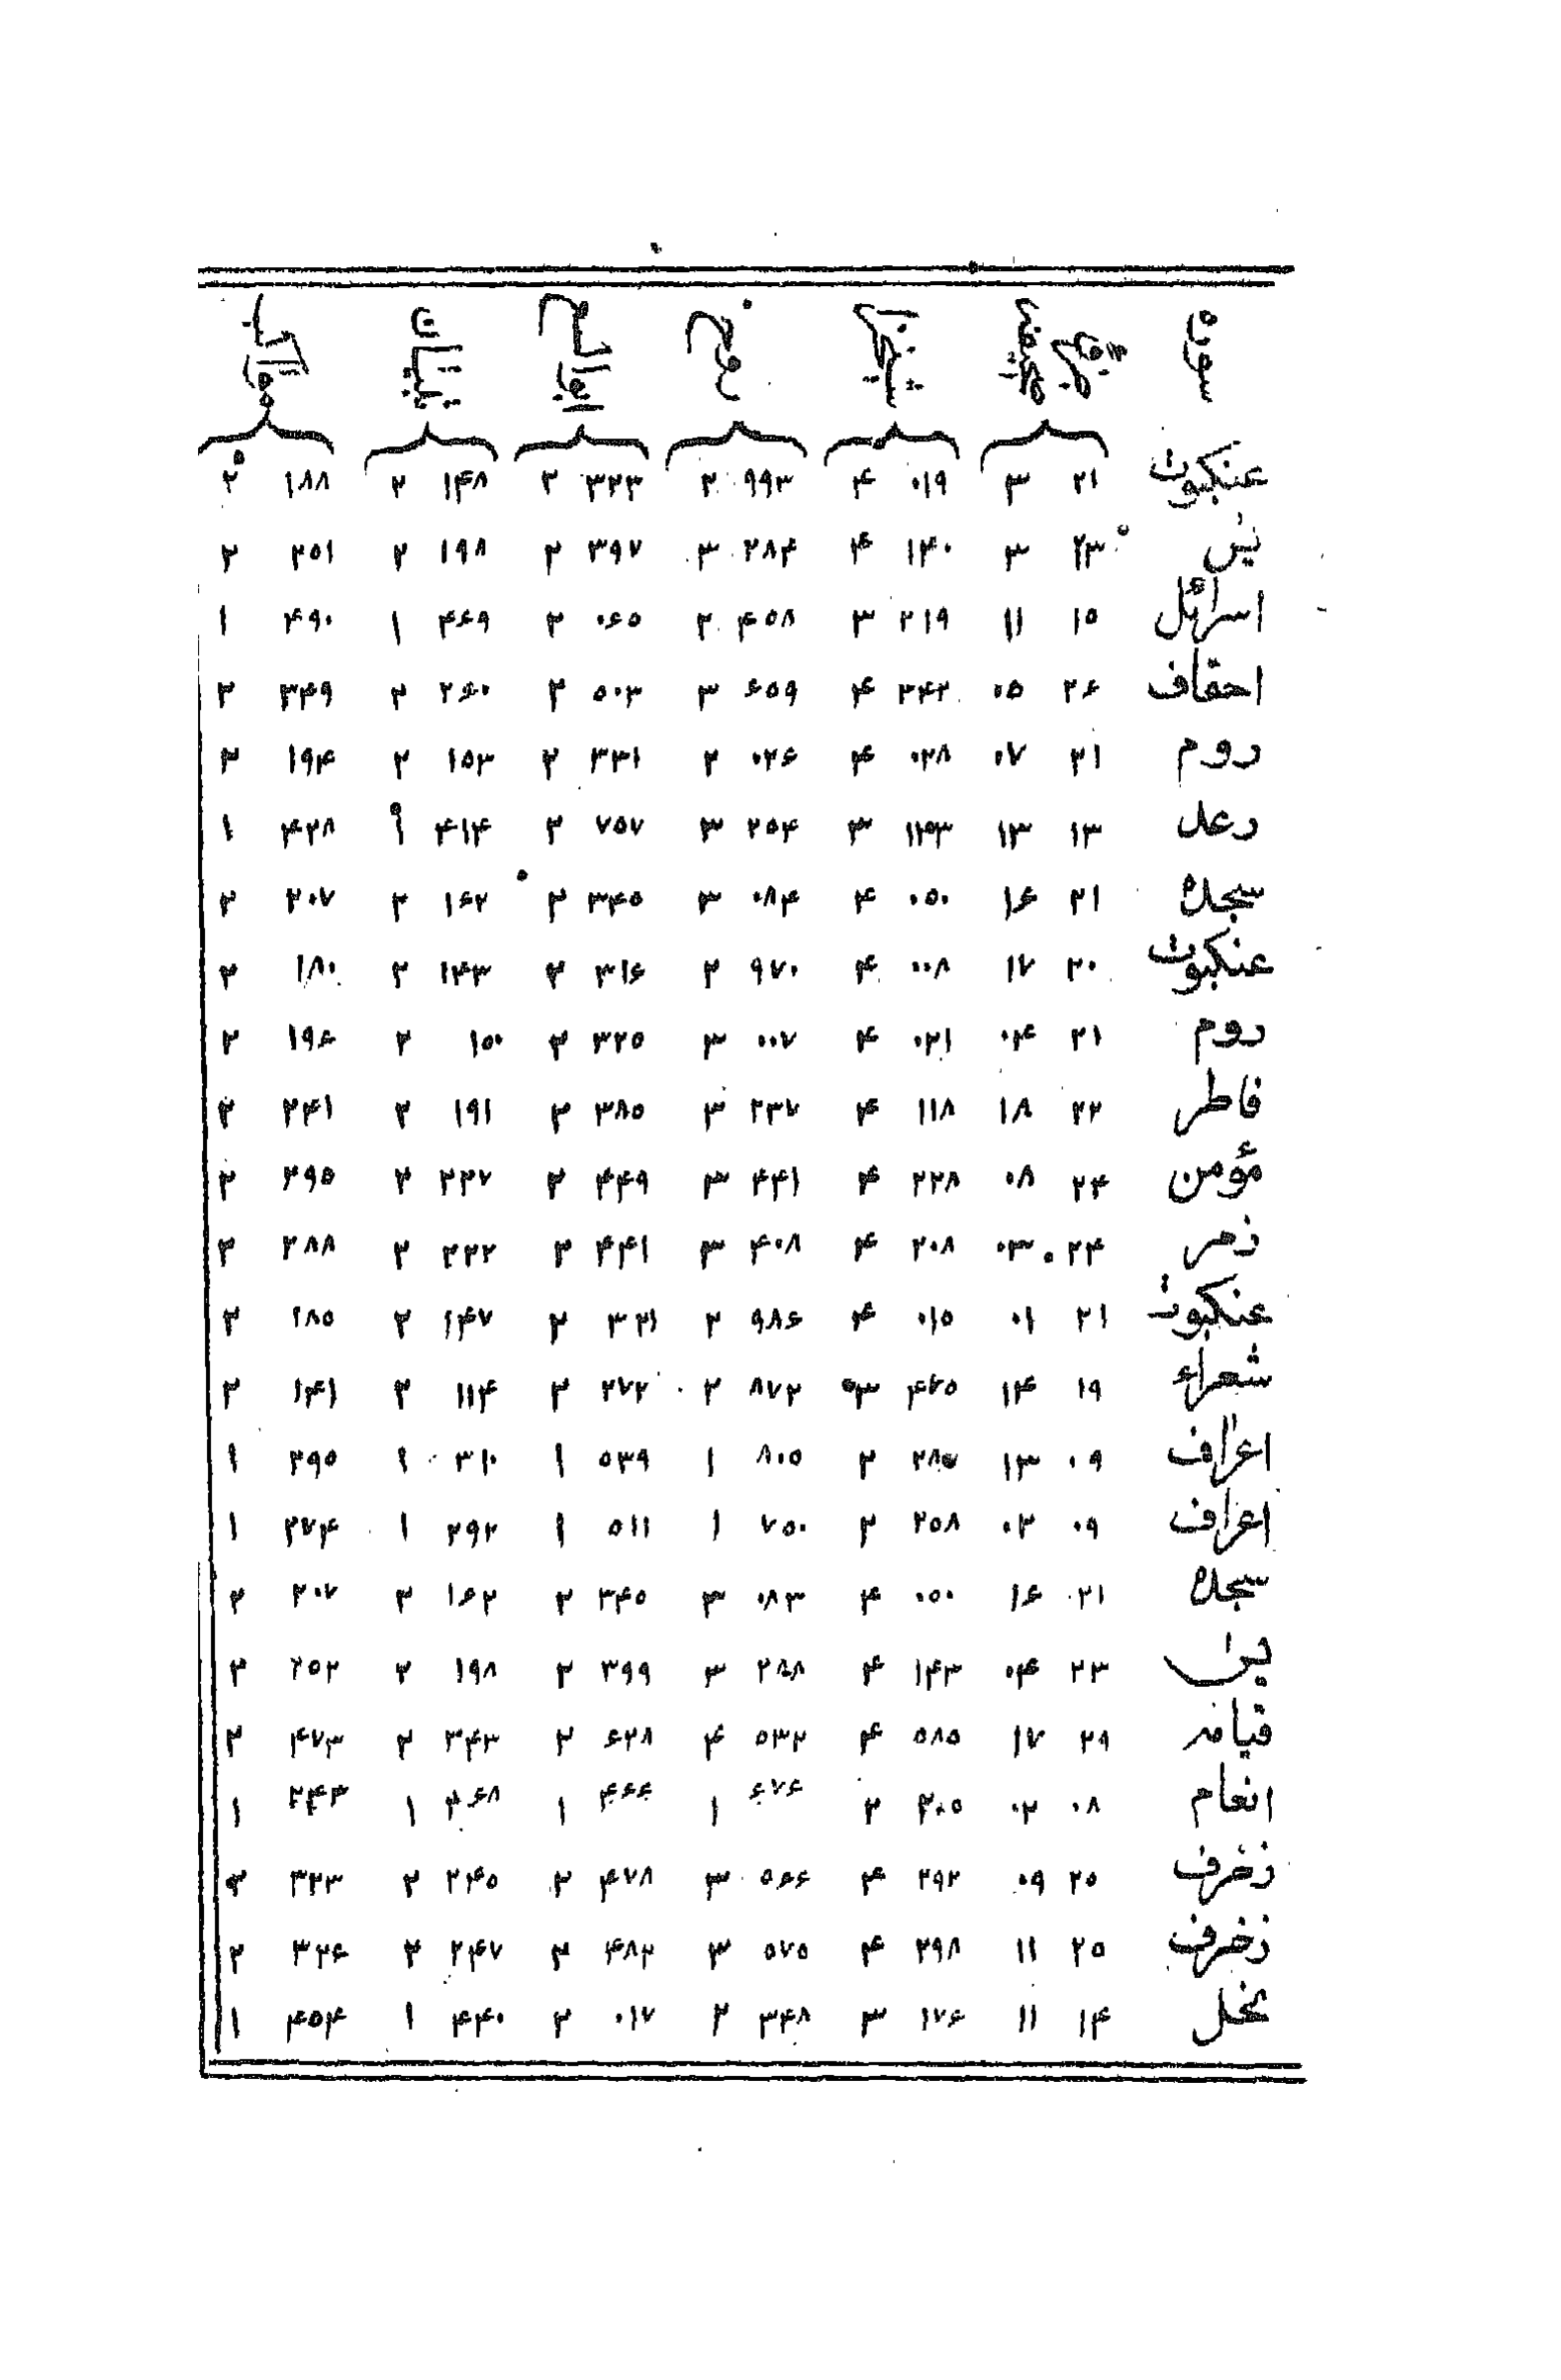 سوره
عنکبوت ۲۱ ۳ ۰۱۹ ۴ ۹۹۳ ۲ ۳۲۳ ۲ ۱۴۸ ۲ ۱۸۸ ۲
یٰس ۲۳ ۳ ۱۴۰ ۴ ۲۸۴ ۳ ۳۹۷ ۲ ۱۹۸ ۲ ۲۵۱ ۲
اسرائیل ۱۵ ۱۱ ۲۱۹ ۳ ۴۵۸ ۲ ۰۶۵ ۲ ۴۶۹ ۱ ۴۹۰ ۱
احقاف ۲۶ ۰۵ ۳۴۲ ۴ ۶۵۹ ۳ ۵۰۳ ۲ ۲۶۰ ۲ ۳۴۹ ۲
روم ۲۱ ۰۷ ۰۲۸ ۴ ۰۲۶ ۲ ۳۳۱ ۲ ۱۵۳ ۲ ۱۹۴ ۲
رعد ۱۳ ۱۳ ۱۴۳ ۳ ۲۵۴ ۳ ۷۵۷ ۲ ۴۱۴ ۱ ۴۲۸ ۱
سجدہ ۲۱ ۱۶ ۰۵۰ ۴ ۰۸۴ ۳ ۳۴۵ ۲ ۱۶۲ ۲ ۲۰۷ ۲
عنکبوت ۲۰ ۱۷ ۰۰۸ ۴ ۹۷۰ ۲ ۳۱۶ ۲ ۱۴۳ ۲ ۱۸۰ ۲
روم ۲۱ ۰۴ ۰۲۱ ۴ ۰۰۷ ۳ ۳۲۵ ۲ ۱۵۰ ۲ ۱۹۶ ۲
فاطر ۲۲ ۱۸ ۱۱۸ ۴ ۲۳۷ ۳ ۳۸۵ ۲ ۱۹۱ ۲ ۲۴۱ ۲
مؤمن ۲۴ ۰۸ ۲۲۸ ۴ ۴۴۱ ۳ ۴۴۹ ۲ ۲۲۷ ۲ ۲۹۵ ۲
زمر ۲۴ ۰۳ ۲۰۸ ۴ ۴۰۸ ۳ ۴۴۱ ۲ ۲۲۲ ۲ ۲۸۸ ۲
عنکبوت ۲۱ ۰۱ ۰۱۵ ۴ ۹۸۶ ۲ ۳۲۱ ۲ ۱۴۷ ۲ ۱۸۵ ۲
شعراء ۱۹ ۱۴ ۴۷۵ ۳ ۸۷۲ ۲ ۲۷۲ ۲ ۱۱۴ ۲ ۱۴۱ ۲
اعراف ۰۹ ۱۳ ۲۸۵ ۲ ۸۰۵ ۱ ۵۳۹ ۱ ۳۱۰ ۱ ۲۹۵ ۱
اعراف ۰۹ ۰۲ ۲۵۸ ۲ ۷۵۰ ۱ ۵۱۱ ۱ ۲۹۲ ۱ ۲۷۴ ۱
سجدہ ۲۱ ۱۶ ۰۵۰ ۴ ۰۸۳ ۳ ۳۴۵ ۲ ۱۶۲ ۲ ۲۰۷ ۲
یٰس ۲۳ ۰۴ ۱۴۳ ۴ ۲۸۸ ۳ ۳۹۹ ۲ ۱۹۸ ۲ ۲۵۲ ۲
قیامہ ۲۹ ۱۷ ۵۸۵ ۴ ۵۳۲ ۴ ۶۲۸ ۲ ۳۴۳ ۲ ۴۷۳ ۲
انعام ۰۸ ۰۲ ۲۰۵ ۲ ۶۷۶ ۱ ۴۶۶ ۱ ۲۶۸ ۱ ۲۴۳ ۱
زخرف ۲۵ ۰۹ ۲۹۲ ۴ ۵۶۶ ۳ ۴۷۸ ۲ ۲۴۵ ۲ ۳۲۳ ۲
زخرف ۲۵ ۱۱ ۲۹۸ ۴ ۵۷۵ ۳ ۴۸۲ ۲ ۲۴۷ ۲ ۳۲۶ ۲
نحل ۱۴ ۱۱ ۱۷۶ ۳ ۳۴۸ ۲ ۰۱۷ ۲ ۴۴۰ ۱ ۴۵۴ ۱